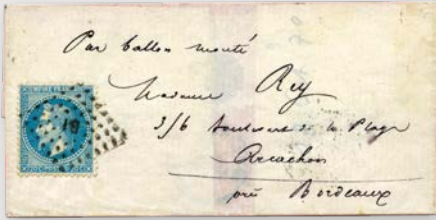 Par ballon monté
EMPIRE FRANC
Madame Rey
316 boulevart de la Plage
Arcachon
près Bordeaux